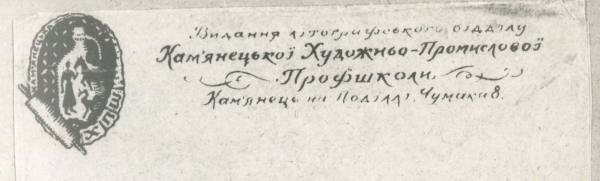 Видання літографського відділу
Кам'янецької Художньо-Промислової
Профшколи.
Кам'янець на Поділлі, Чумаків.